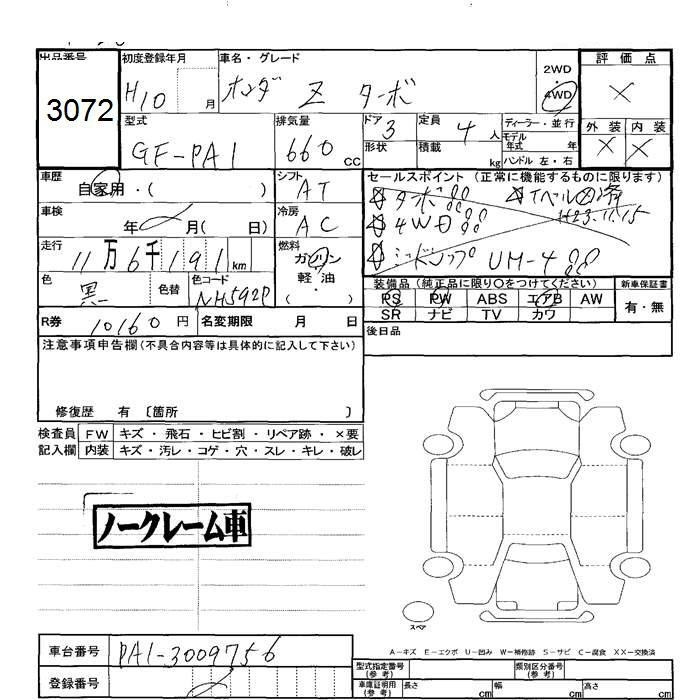 出品番号 初度登録年月 車名・グレード 2WD 評価点
3072 H10 月 ホンダ Z ターボ ・4WD ×
型式 排気量 ドア 定員 ディーラー・並行 外装 内装
GF-PA1 660 CC 3 4人 モデル年式 年 × ×
形状 積載 kg ハンドル 左・右
車歴 シフト セールスポイント (正常に機能するものに限ります)
自家用・( ) AT ターボ
車検 冷房 4WD H23.11.15
年 月( 日) AC UM-4
走行 燃料
11万6千191km ガソリン
色 色替 色コード 軽油
黒 NH592P ( )
装備品 (純正品に限り〇をつけてください) 新車保証書
PS PW ABS エアB AW 有・無
SR ナビ TV カワ
R券 10160円 名変期限 月 日 後日品
注意事項申告欄(不具合内容等は具体的に記入して下さい)
修復歴 有 〔箇所 〕
検査員 FW キズ・飛石・ヒビ割・リペア跡・×要
記入欄 内装 キズ・汚レ・コゲ・穴・スレ・キレ・破レ
ノークレーム車
スペア
A-キズ E-エクボ U-凹み W-補修跡 S-サビ C-腐食 XX-交換済
車台番号 PA1-3009756
登録番号
型式指定番号(参考) 類別区分番号(参考)
車庫証明用(参考) 長さ cm 幅 cm 高さ cm